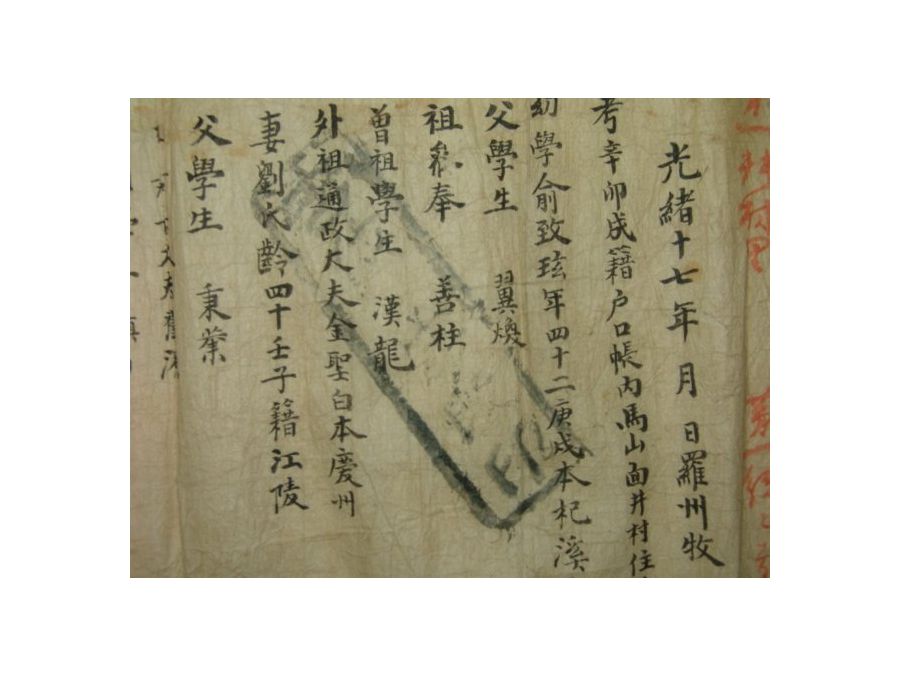 光緒十七年 月 日羅州牧
考辛卯成籍户口帳內馬山面井村住
幼學俞致玹年四十二庚戌本杞溪
父學生 翼煥
祖參奉 善柱
曾祖學生 漢龍
外祖通政大夫金聖白本慶州
妻劉氏齡四十壬子籍江陵
父學生 秉業